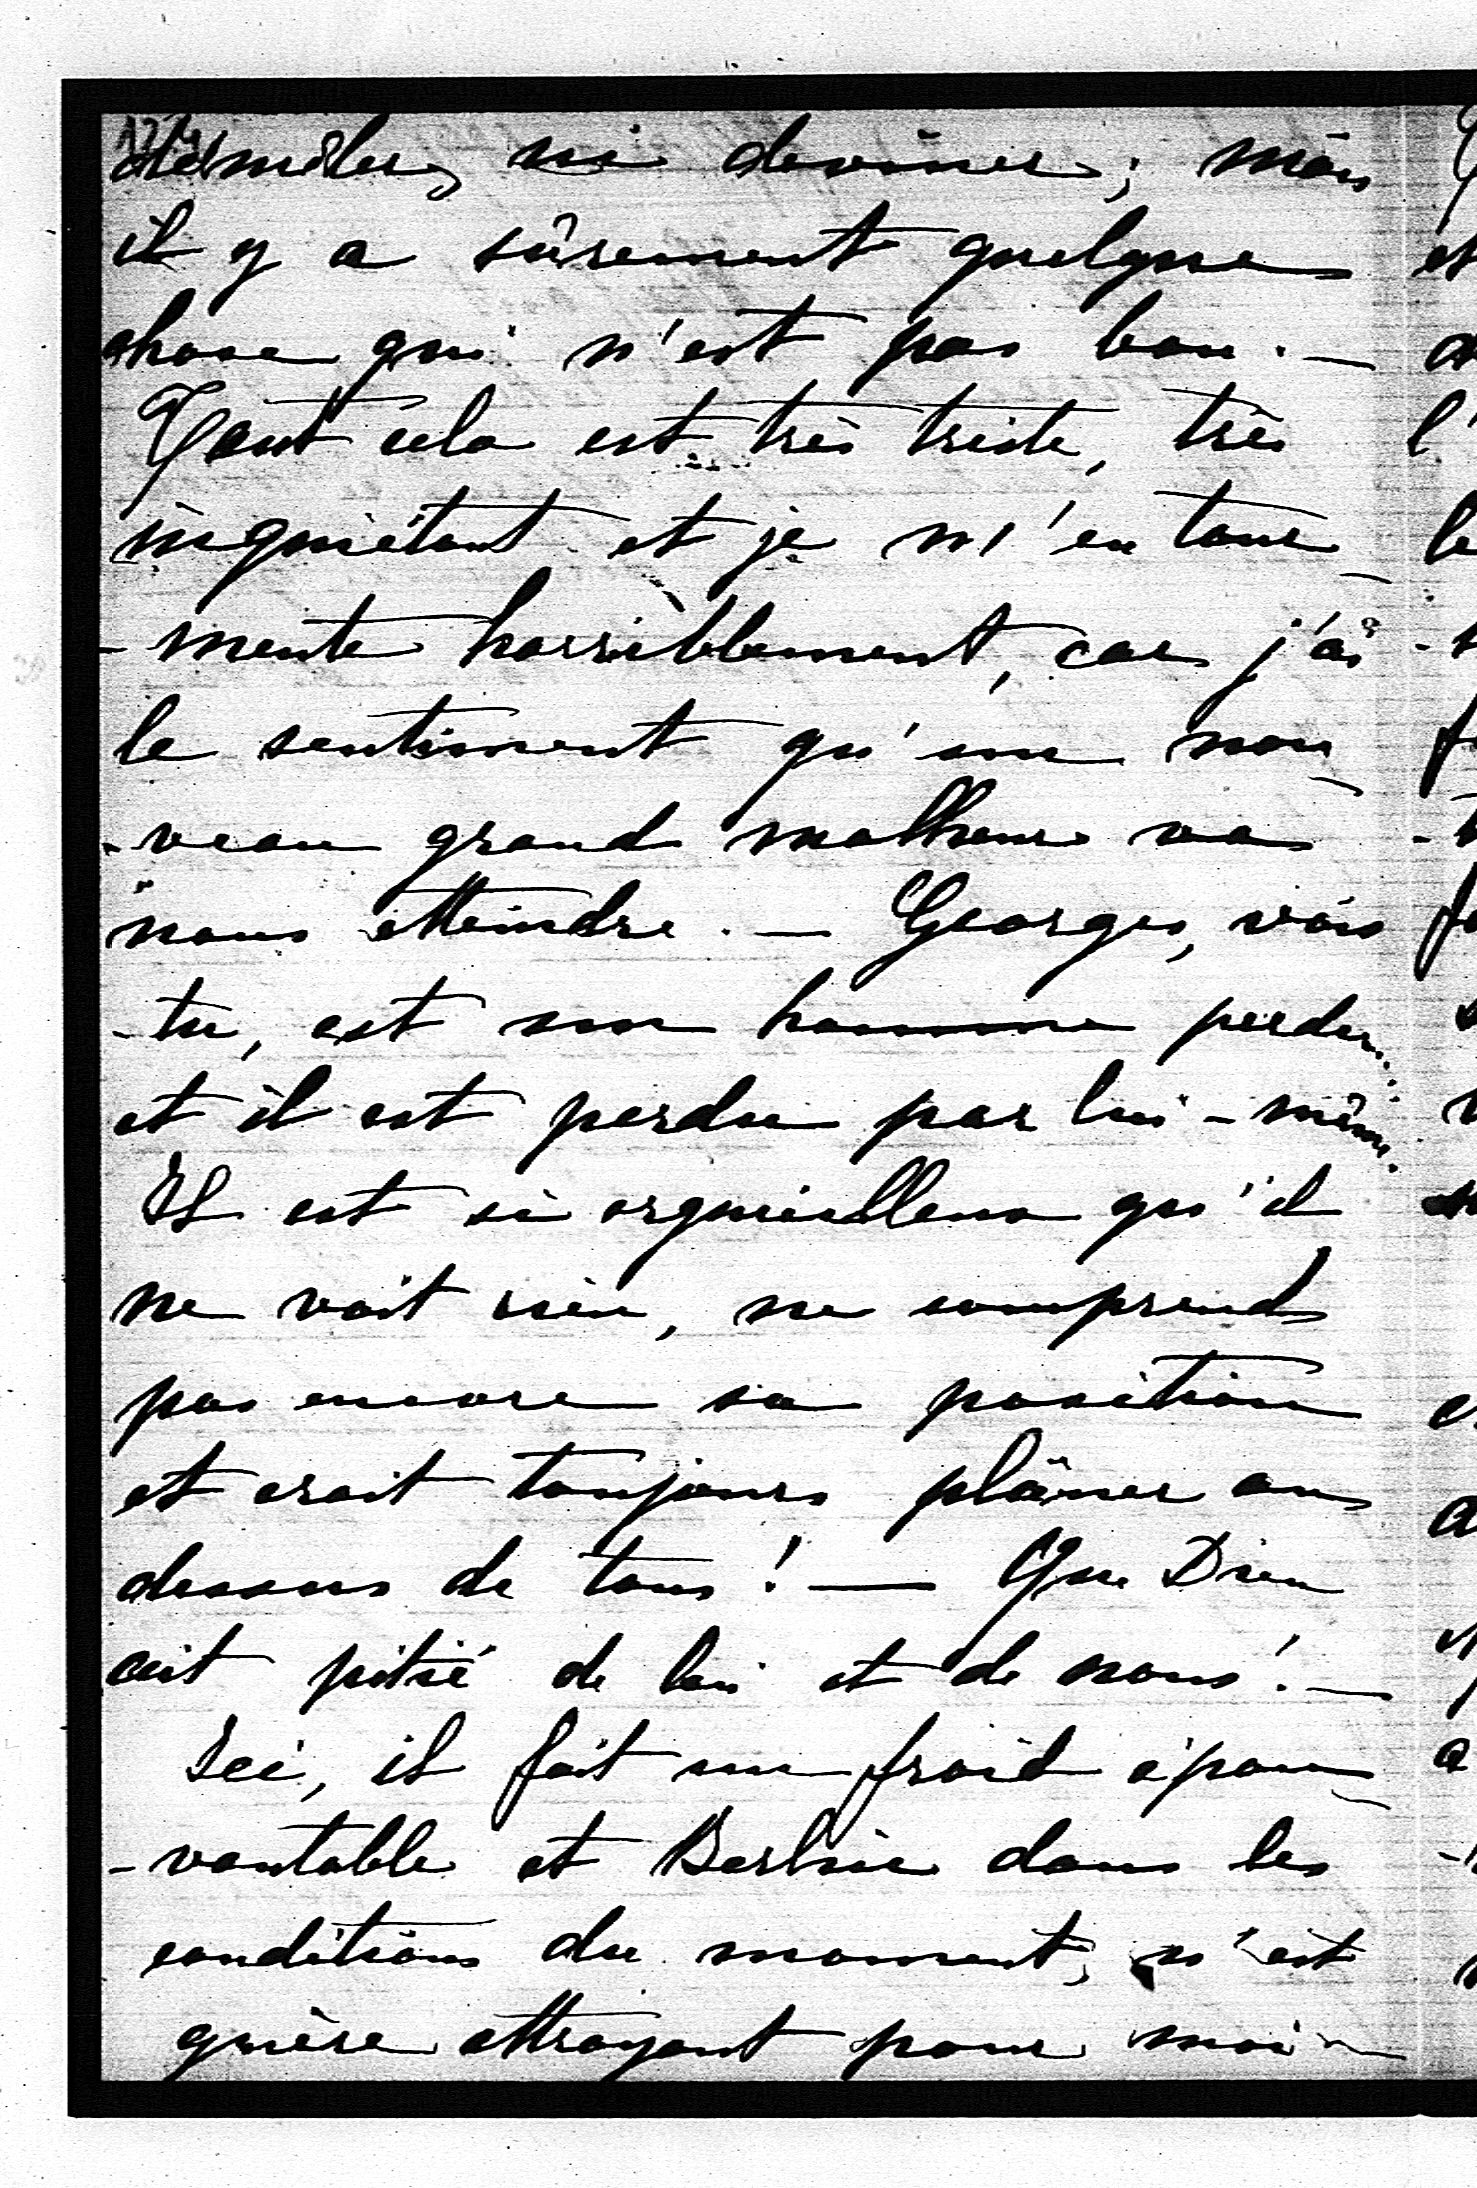 démêler, ni deviner; mais
il y a sûrement quelque
chose qui n'est pas bon. —
Tout cela est très triste, très
inquiétant et je m'en tour-
-mente horriblement, car j'ai
le sentiment qu'un nou-
-veau grand malheur va
nous atteindre. — Georges, vois
-tu, est un homme perdu
et il est perdu par lui-même.
Il est si orgueilleux qu'il
ne voit rien, ne comprend
pas encore sa position
et croit toujours plâner au
dessus de tous! — Que Dieu
ait pitié de lui et de nous! —
Ici, il fait un froid épou-
-vantable et Berlin dans les
conditions du moment, n'est
guère attrayant pour moi